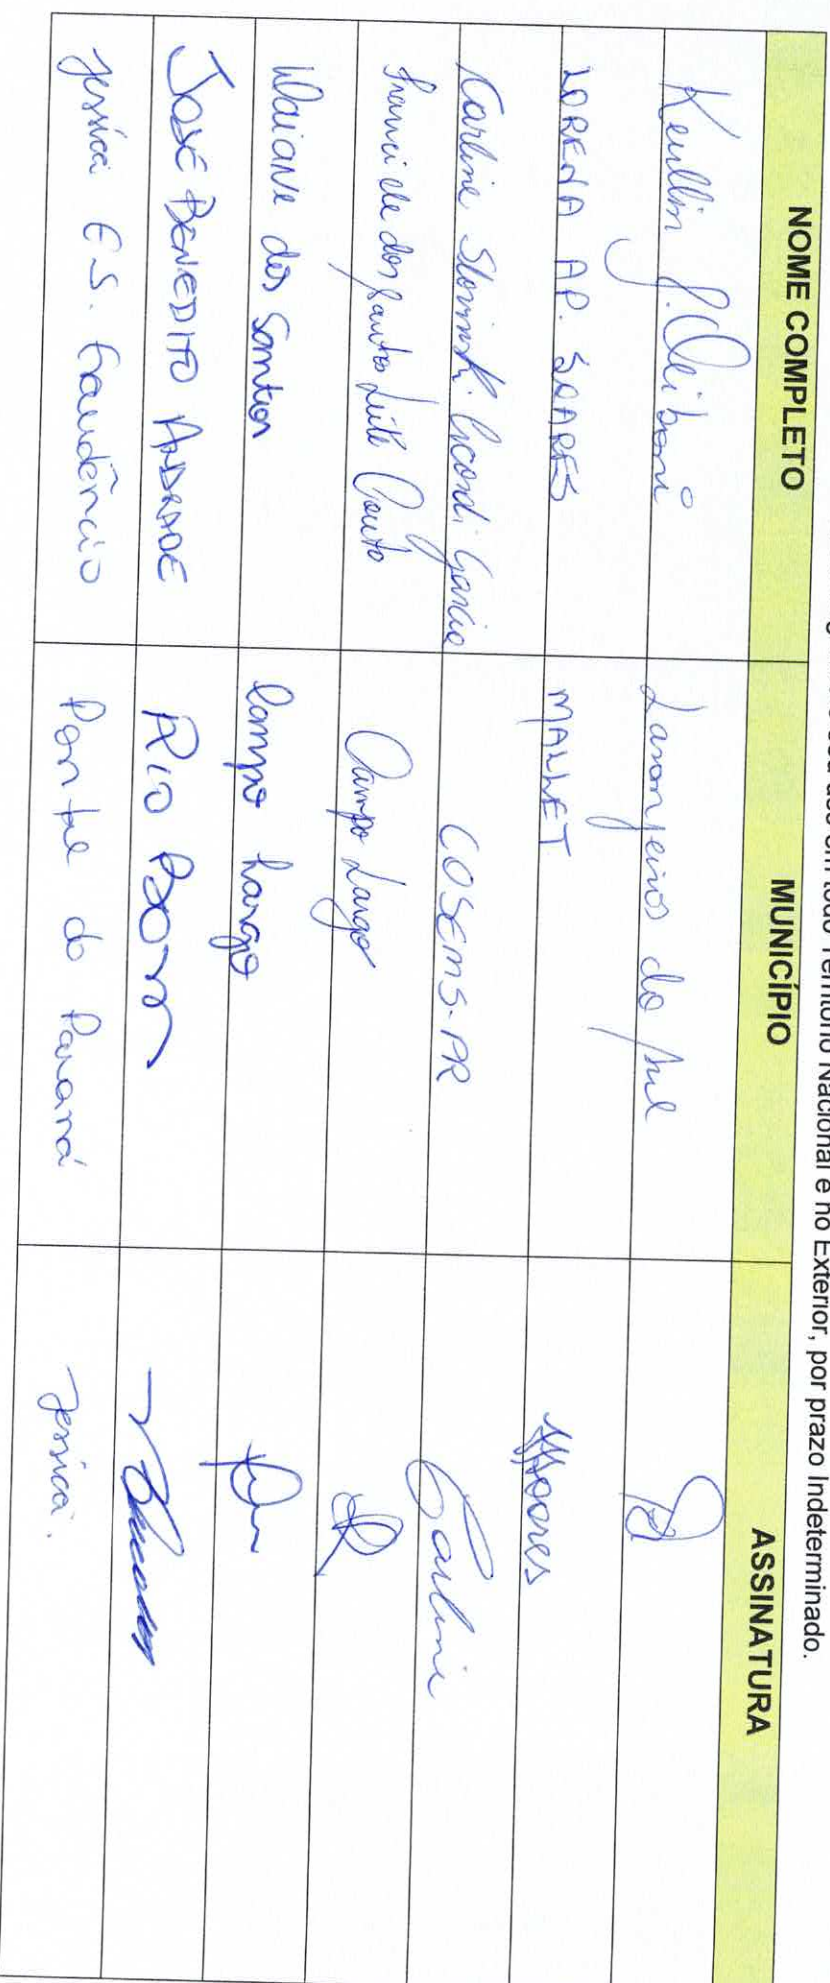 uso em todo Território Nacional e no Exterior, por prazo Indeterminado.
NOME COMPLETO MUNICÍPIO ASSINATURA
Keullin Laranjeiras do Sul
LORENA AP. SOARES MALLET Soares
Karline Slovinski Garcia COSEMS-PR Karline
Francielle dos Santos Leite Couto Campo Largo
Daiane dos Santos Campo Largo
JOSÉ BENEDITO ANDRADE RIO BOM
Jessica E.S. Gaudêncio Pontal do Paraná Jessica.